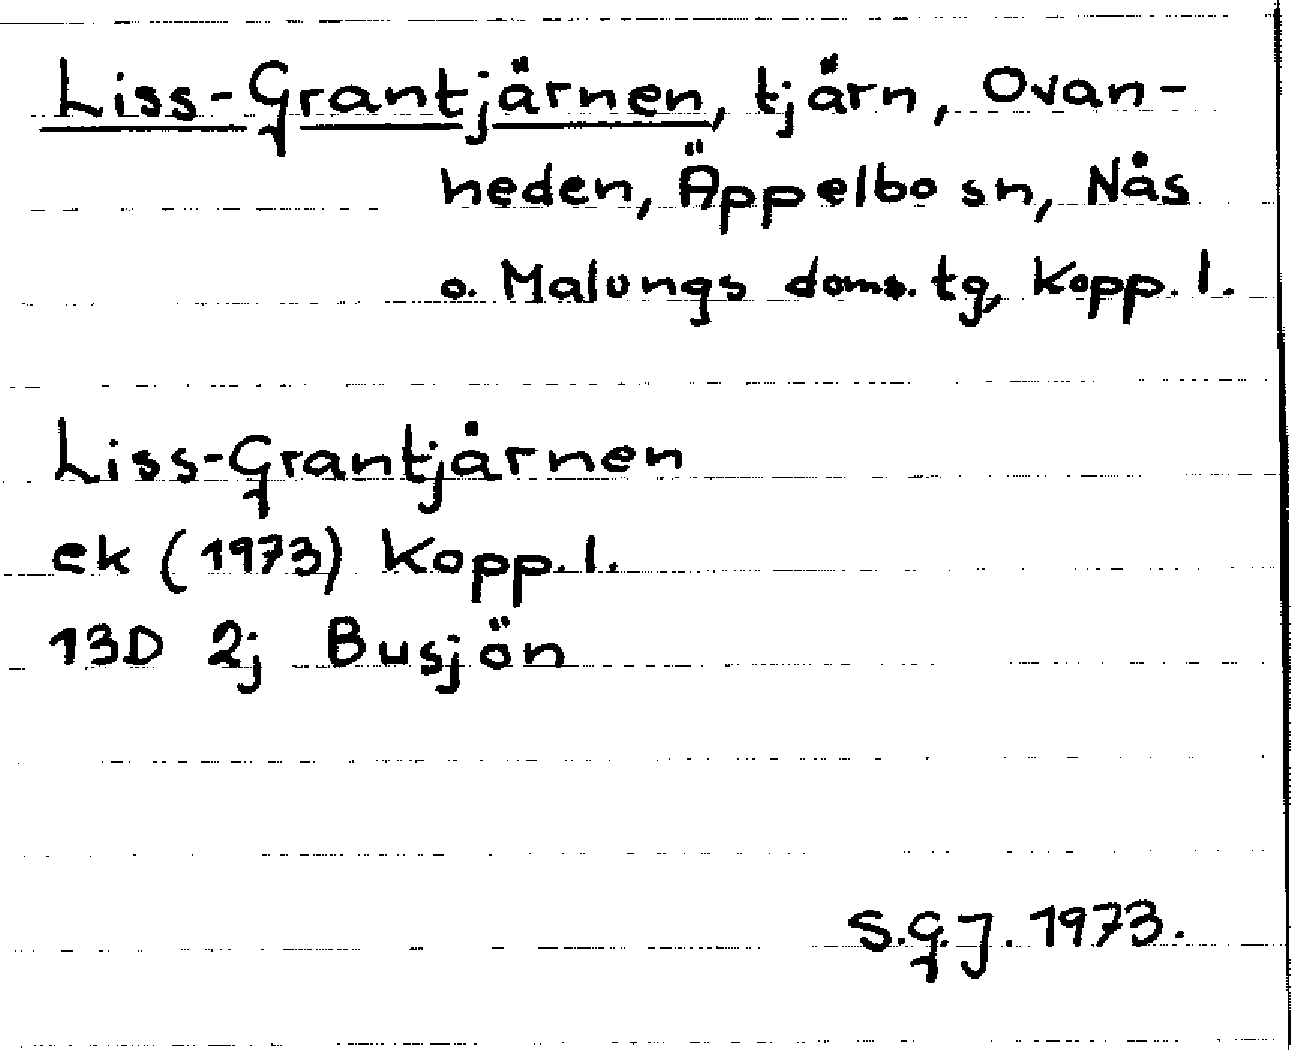 Liss-Grantjärnen, tjärn, Ovan-
heden, Äppelbo sn, Nås
o. Malungs doms.tg, Kopp. l.
Liss-Grantjärnen
ek (1973) Kopp. l.
13D 2j Busjön
S.G.J. 1973.